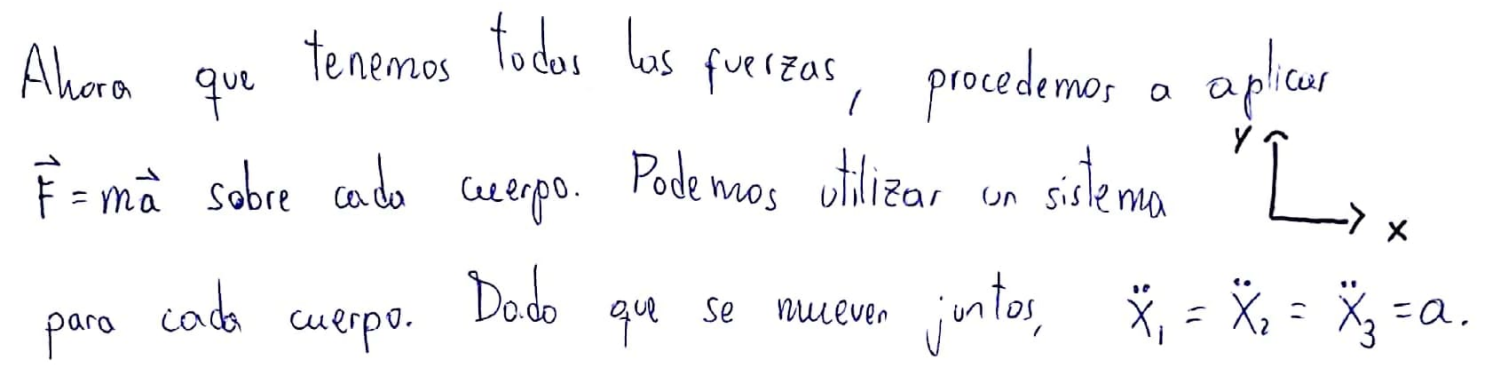 Ahora que tenemos todas las fuerzas, procedemos a aplicar
F⃗ = ma⃗ sobre cada cuerpo. Podemos utilizar un sistema y x
para cada cuerpo. Dado que se mueven juntos, ẍ₁ = ẍ₂ = ẍ₃ = a.